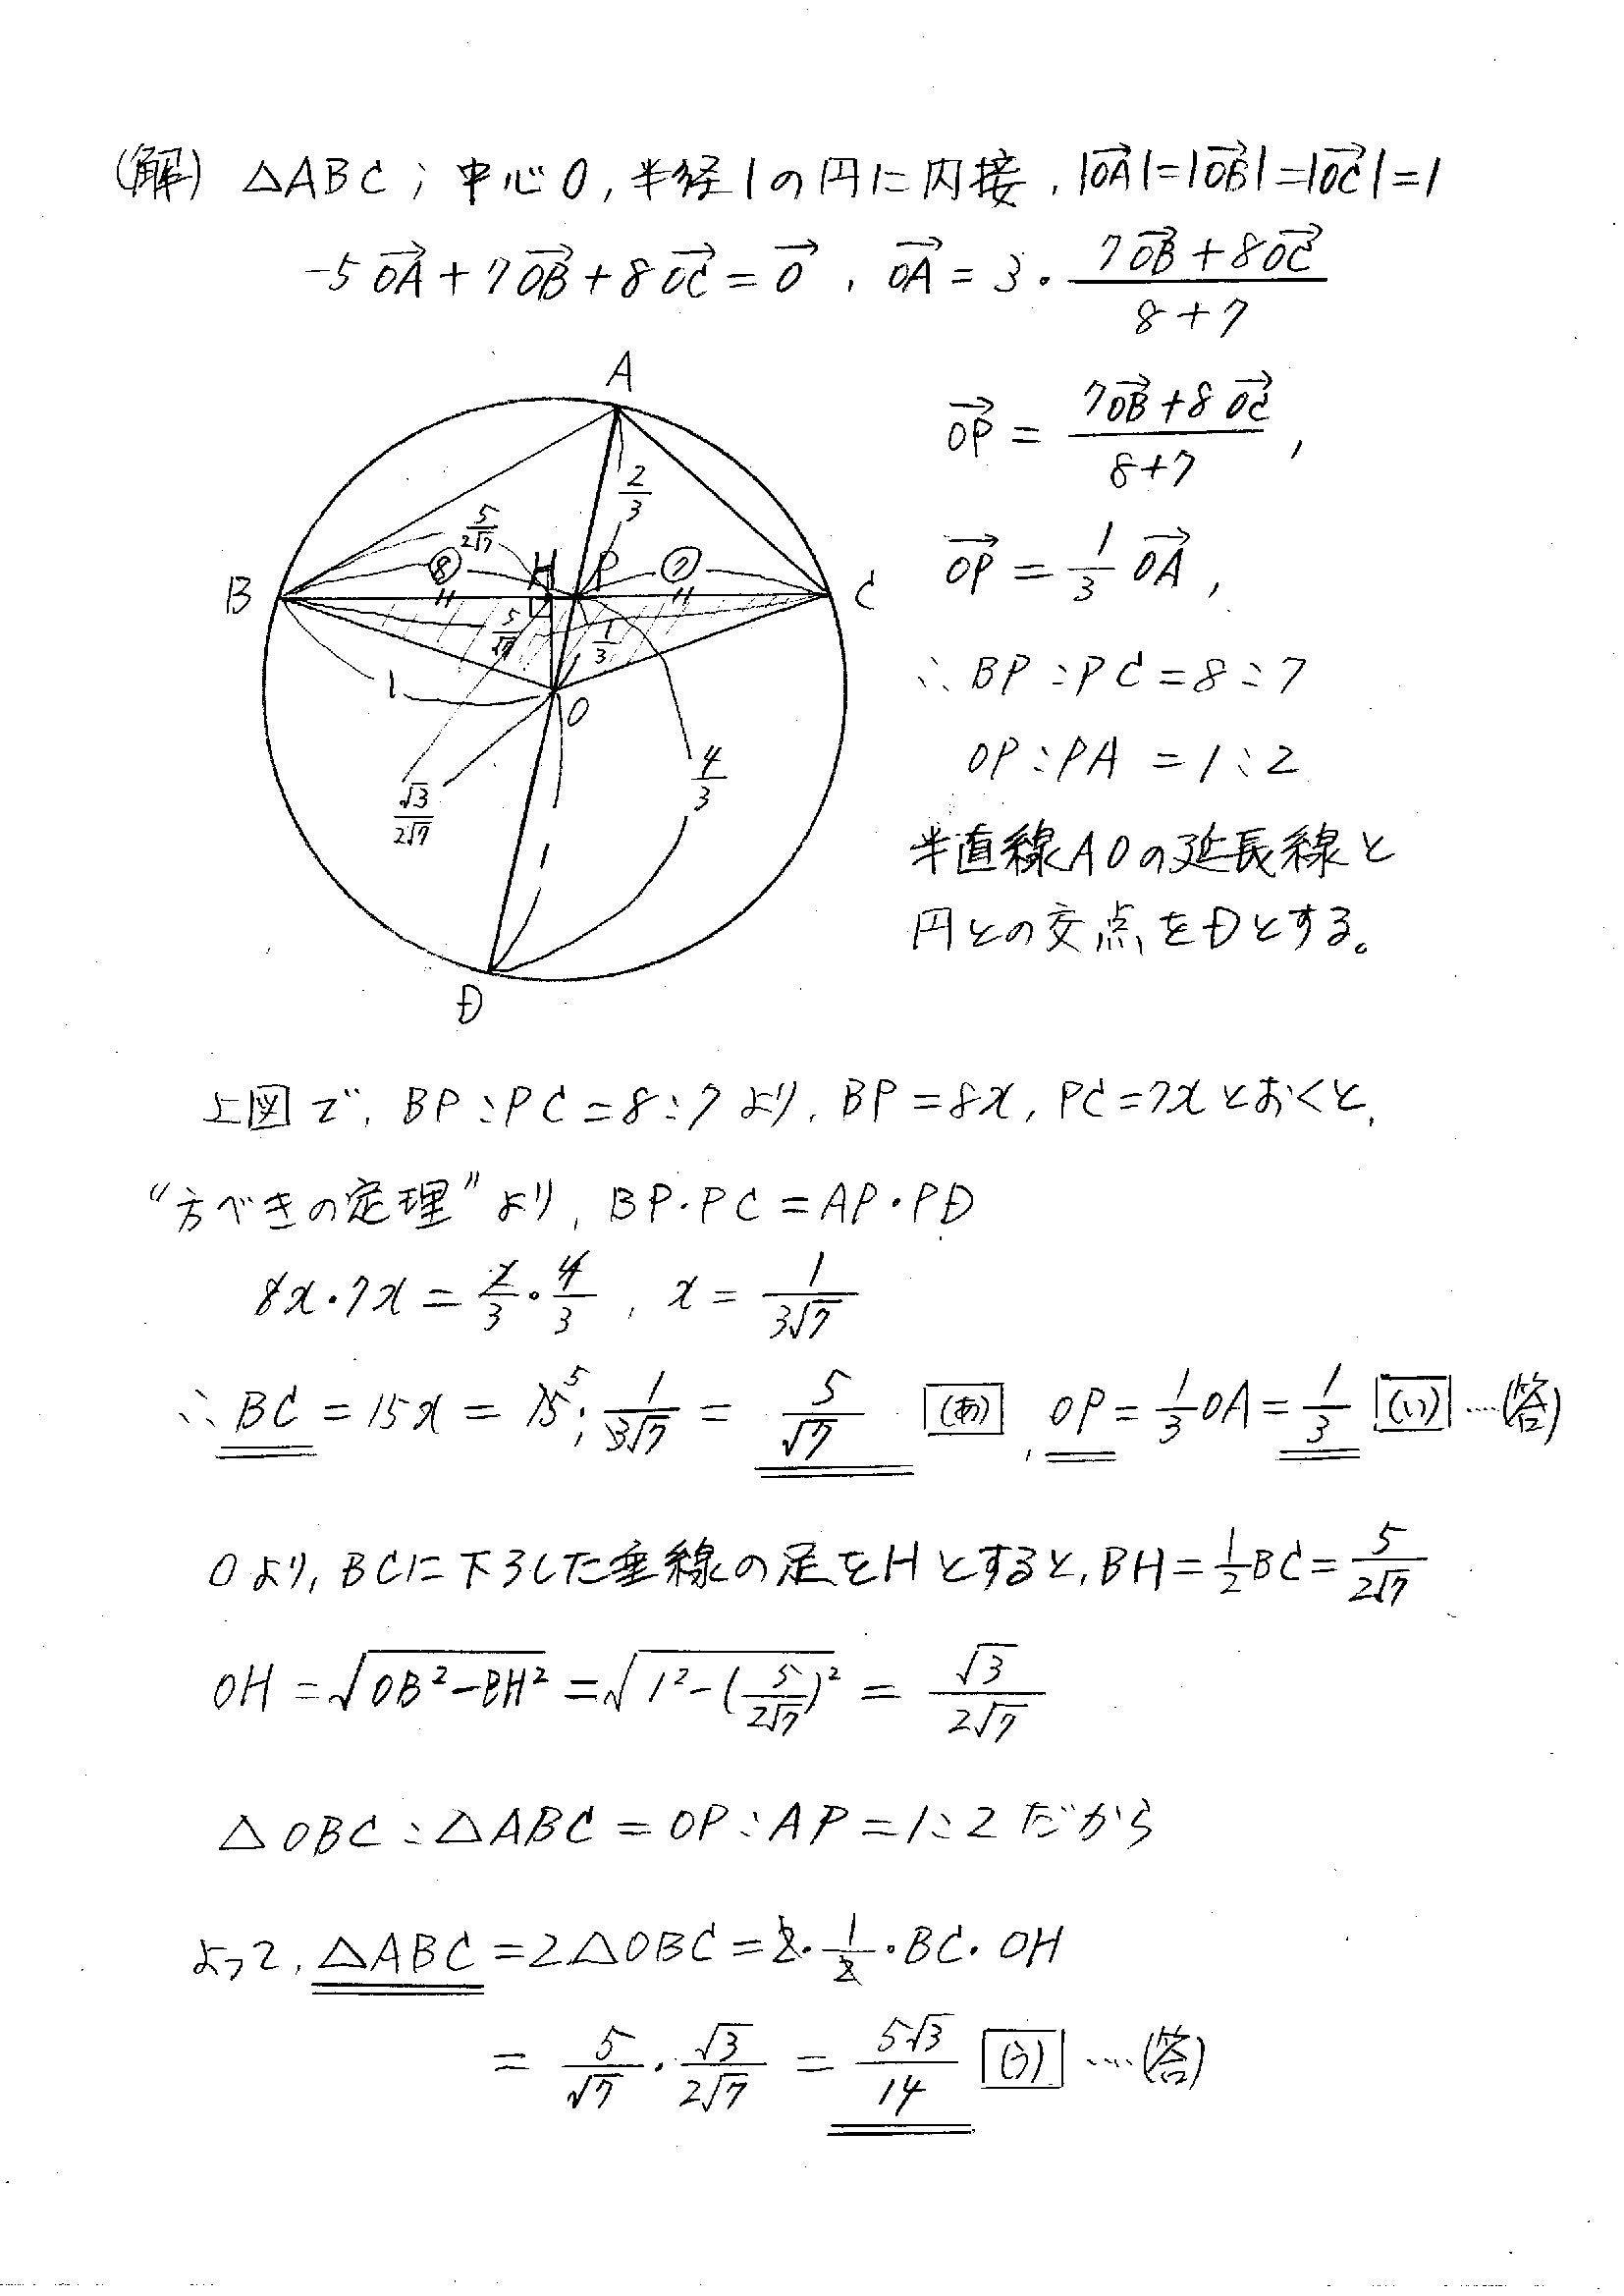 (解) △ABC ; 中心O, 半径1の円に内接, |OA→|=|OB→|=|OC→|=1
-5OA→+7OB→+8OC→=0→, OA→=3・(7OB→+8OC→)/(8+7)
OP→=(7OB→+8OC→)/(8+7),
OP→=1/3 OA→,
∴BP:PC=8:7
OP:PA=1:2
半直線AOの延長線と
円との交点をDとする。
A
2/3
5/2√7
⑧
H
P
⑦
B
C
5/√7
1/3
1
O
√3/2√7
4/3
1
D
上図で, BP:PC=8:7より, BP=8x, PC=7xとおくと,
“方べきの定理”より, BP・PC=AP・PD
8x・7x=2/3・4/3, x=1/3√7
∴BC=15x=15 5・1/3√7=5/√7 (あ), OP=1/3OA=1/3 (い)…(答)
Oより, BCに下ろした垂線の足をHとすると, BH=1/2BC=5/2√7
OH=√(OB²-BH²)=√(1²-(5/2√7)²)=√3/2√7
△OBC:△ABC=OP:AP=1:2だから
よって, △ABC=2△OBC=2・1/2・BC・OH
=5/√7・√3/2√7=5√3/14 (う)…(答)